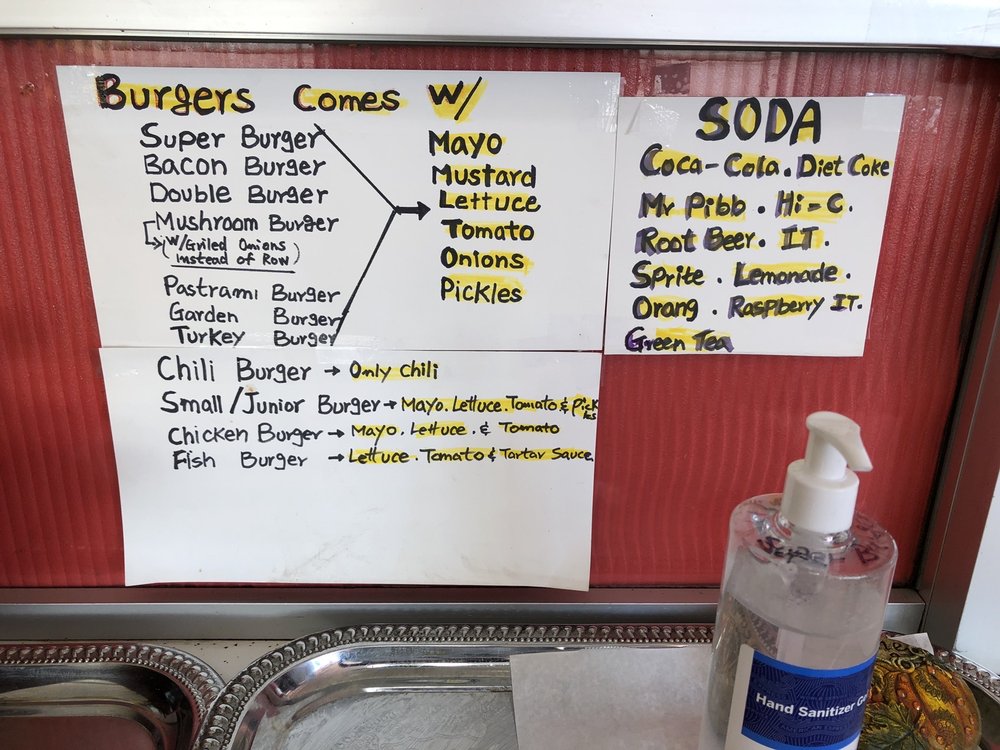 Burgers Comes W/
Super Burger
Bacon Burger
Double Burger
Mushroom Burger
(W/Griled Onions
Instead of Row)
Pastrami Burger
Garden Burger
Turkey Burger
Mayo
Mustard
Lettuce
Tomato
Onions
Pickles
Chili Burger → Only Chili
Small/Junior Burger → Mayo. Lettuce. Tomato & Pickles
Chicken Burger → Mayo. Lettuce. & Tomato
Fish Burger → Lettuce. Tomato & Tartar Sauce
SODA
Coca-Cola. Diet Coke
Mr Pibb. Hi-C.
Root Beer. IT.
Sprite. Lemonade.
Orang. Raspberry IT.
Green Tea
Hand Sanitizer